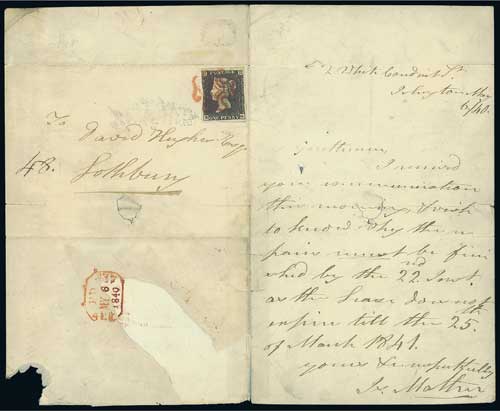 POSTAGE
ONE PENNY
To
David Hughes Esq
48. Lothbury
MY 6
1840
2 White Conduit St
Islington May
6/40.
Gentlemen
I received
your communication
this morning, I wish
to know why the re
pairs must be fini
shed by the 22nd Inst.
as the Lease does not
expire till the 25.
of March 1841.
yours respectfully
Mather